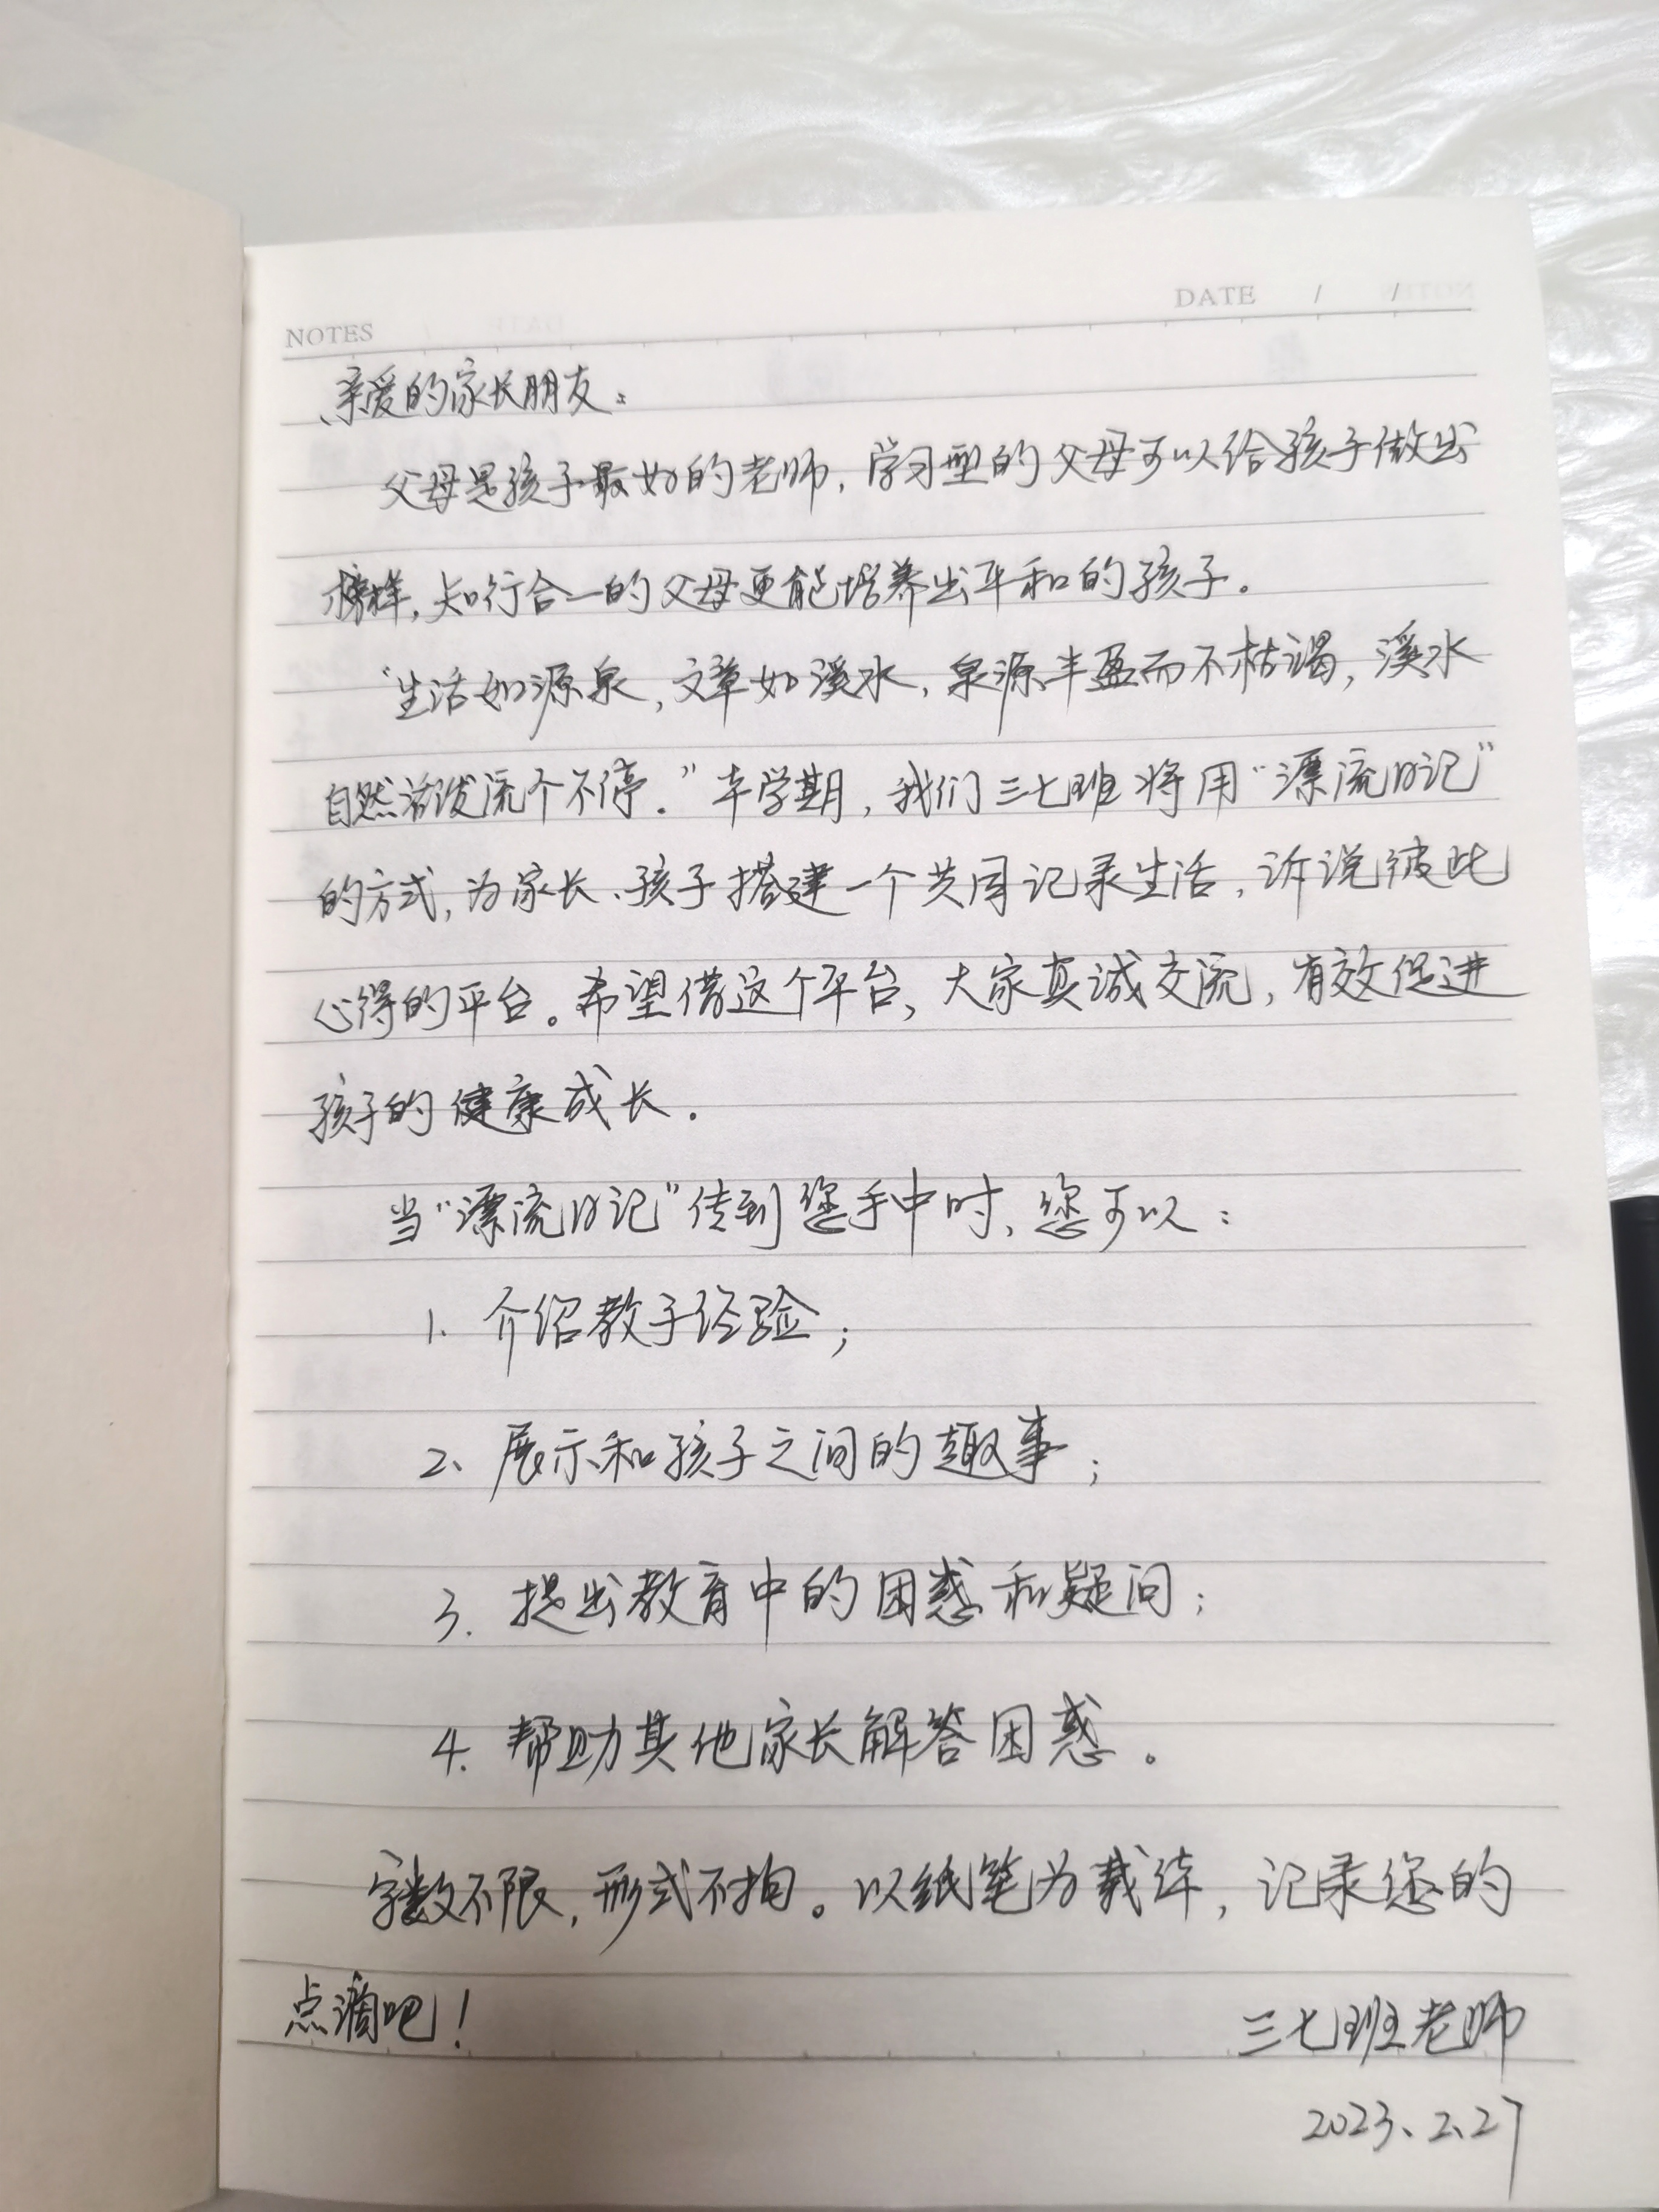 NOTES
DATE / /
亲爱的家长朋友：
父母是孩子最好的老师，学习型的父母可以给孩子做出
榜样，知行合一的父母更能培养出平和的孩子。
“生活如源泉，文章如溪水，泉源丰盈而不枯竭，溪水
自然活泼流个不停。”本学期，我们三七班将用“漂流日记”
的方式，为家长、孩子搭建一个共同记录生活，诉说彼此
心得的平台。希望借这个平台，大家真诚交流，有效促进
孩子的健康成长.
当“漂流日记”传到您手中时，您可以：
1. 介绍教子经验；
2、展示和孩子之间的趣事；
3. 提出教育中的困惑和疑问；
4. 帮助其他家长解答困惑。
字数不限，形式不拘。以纸笔为载体，记录您的
点滴吧！
三七班老师
2023、2、27